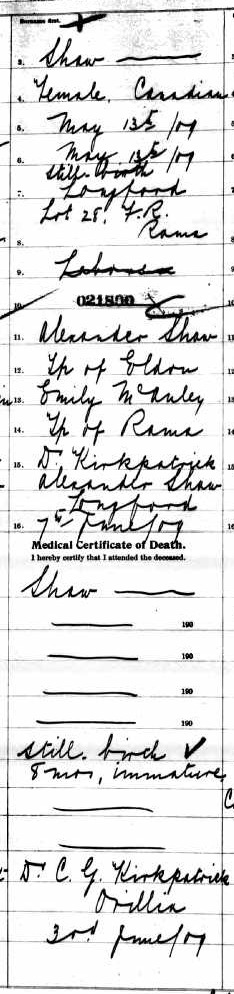 Surname first.
3. Shaw —
4. Female. Canadian
5. May 13th/09
6. May 13th/09
Still birth
7. Longford
Lot 28, F.R.
Rama
8.
9. Laborer
10. 021800
11. Alexander Shaw
12. Tp of Eldon
13. Emily McAuley
14. Tp of Rama
15. Dr Kirkpatrick
Alexander Shaw
Longford
16. 7th June/09
Medical Certificate of Death.
I hereby certify that I attended the deceased.
Shaw —
— 190
— 190
— 190
— 190
still. birth ✓
8 mos, immature
Dr. C. G. Kirkpatrick
Orillia
3rd June/09